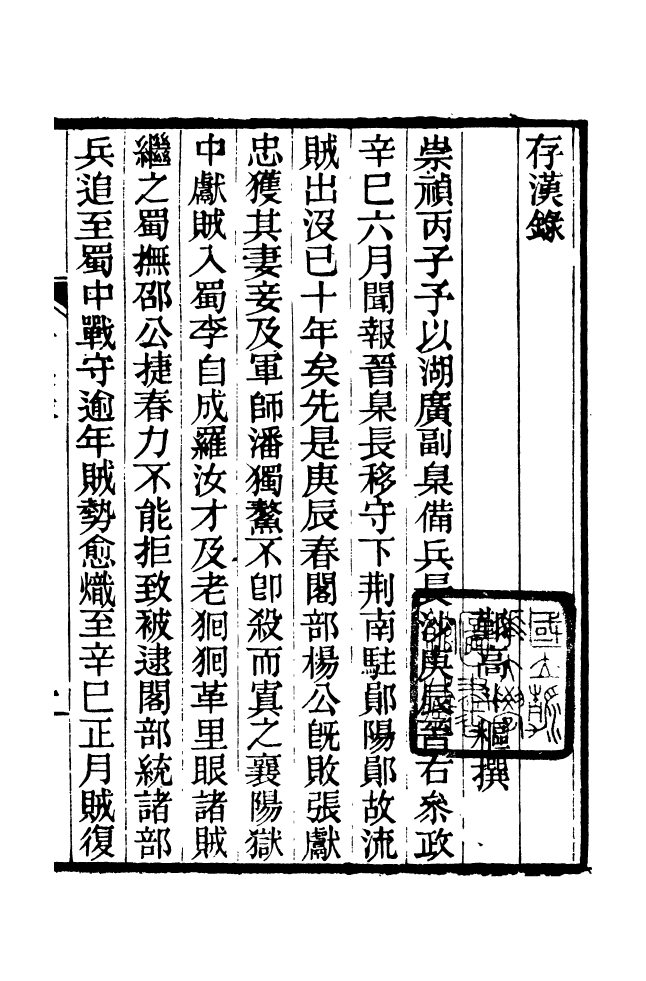 存漢錄
鄞高斗樞撰
崇禎丙子予以湖廣副臬備兵長沙庚辰晉右叅政
辛巳六月聞報晉臬長移守下荆南駐鄖陽鄖故流
賊出沒已十年矣先是庚辰春閣部楊公旣敗張獻
忠獲其妻妾及軍師潘獨鰲不卽殺而寘之襄陽獄
中獻賊入蜀李自成羅汝才及老𢌞𢌞革里眼諸賊
繼之蜀撫邵公捷春力不能拒致被逮閣部統諸部
兵追至蜀中戰守逾年賊勢愈熾至辛巳正月賊復